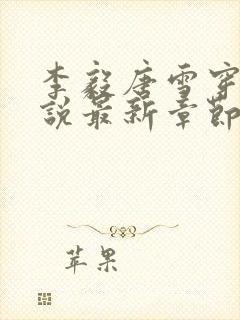 李毅唐雪穿
说最新章节
苹果